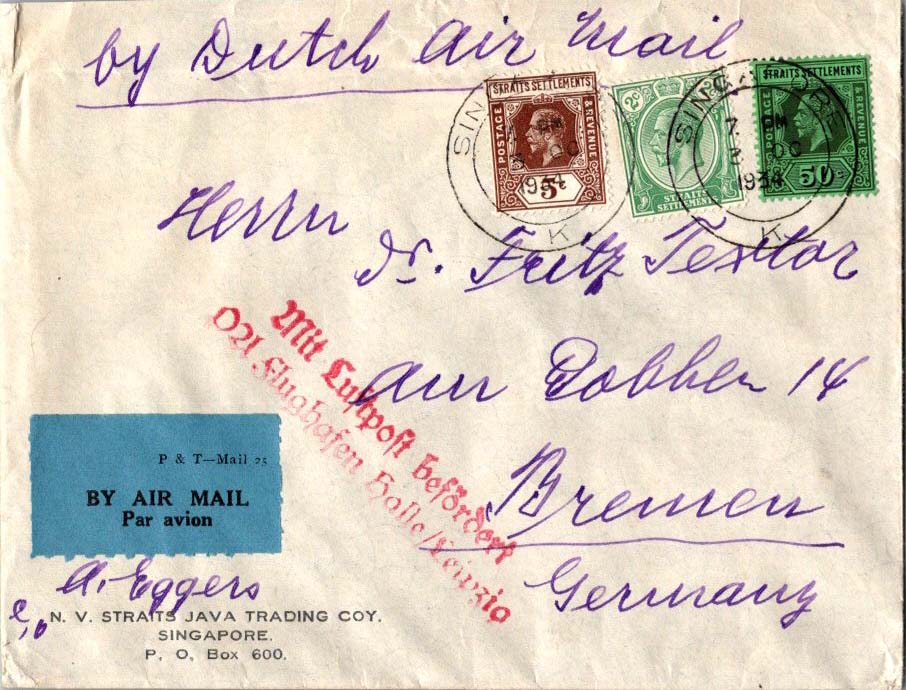 by Dutch Air Mail
STRAITS SETTLEMENTS
POSTAGE & REVENUE
5c
2c
STRAITS SETTLEMENTS
STRAITS SETTLEMENTS
POSTAGE & REVENUE
50c
SINGAPORE
OC
1934
K
SINGAPORE
OC
1934
K
Herrn
Dr. Fritz Textor
Am Dobben 14
Bremen
Germany
Mit Luftpost befördert
Flughafen Halle/Leipzig
P & T—Mail 25
BY AIR MAIL
Par avion
A. Eggers
c/o N. V. STRAITS JAVA TRADING COY.
SINGAPORE.
P. O, Box 600.